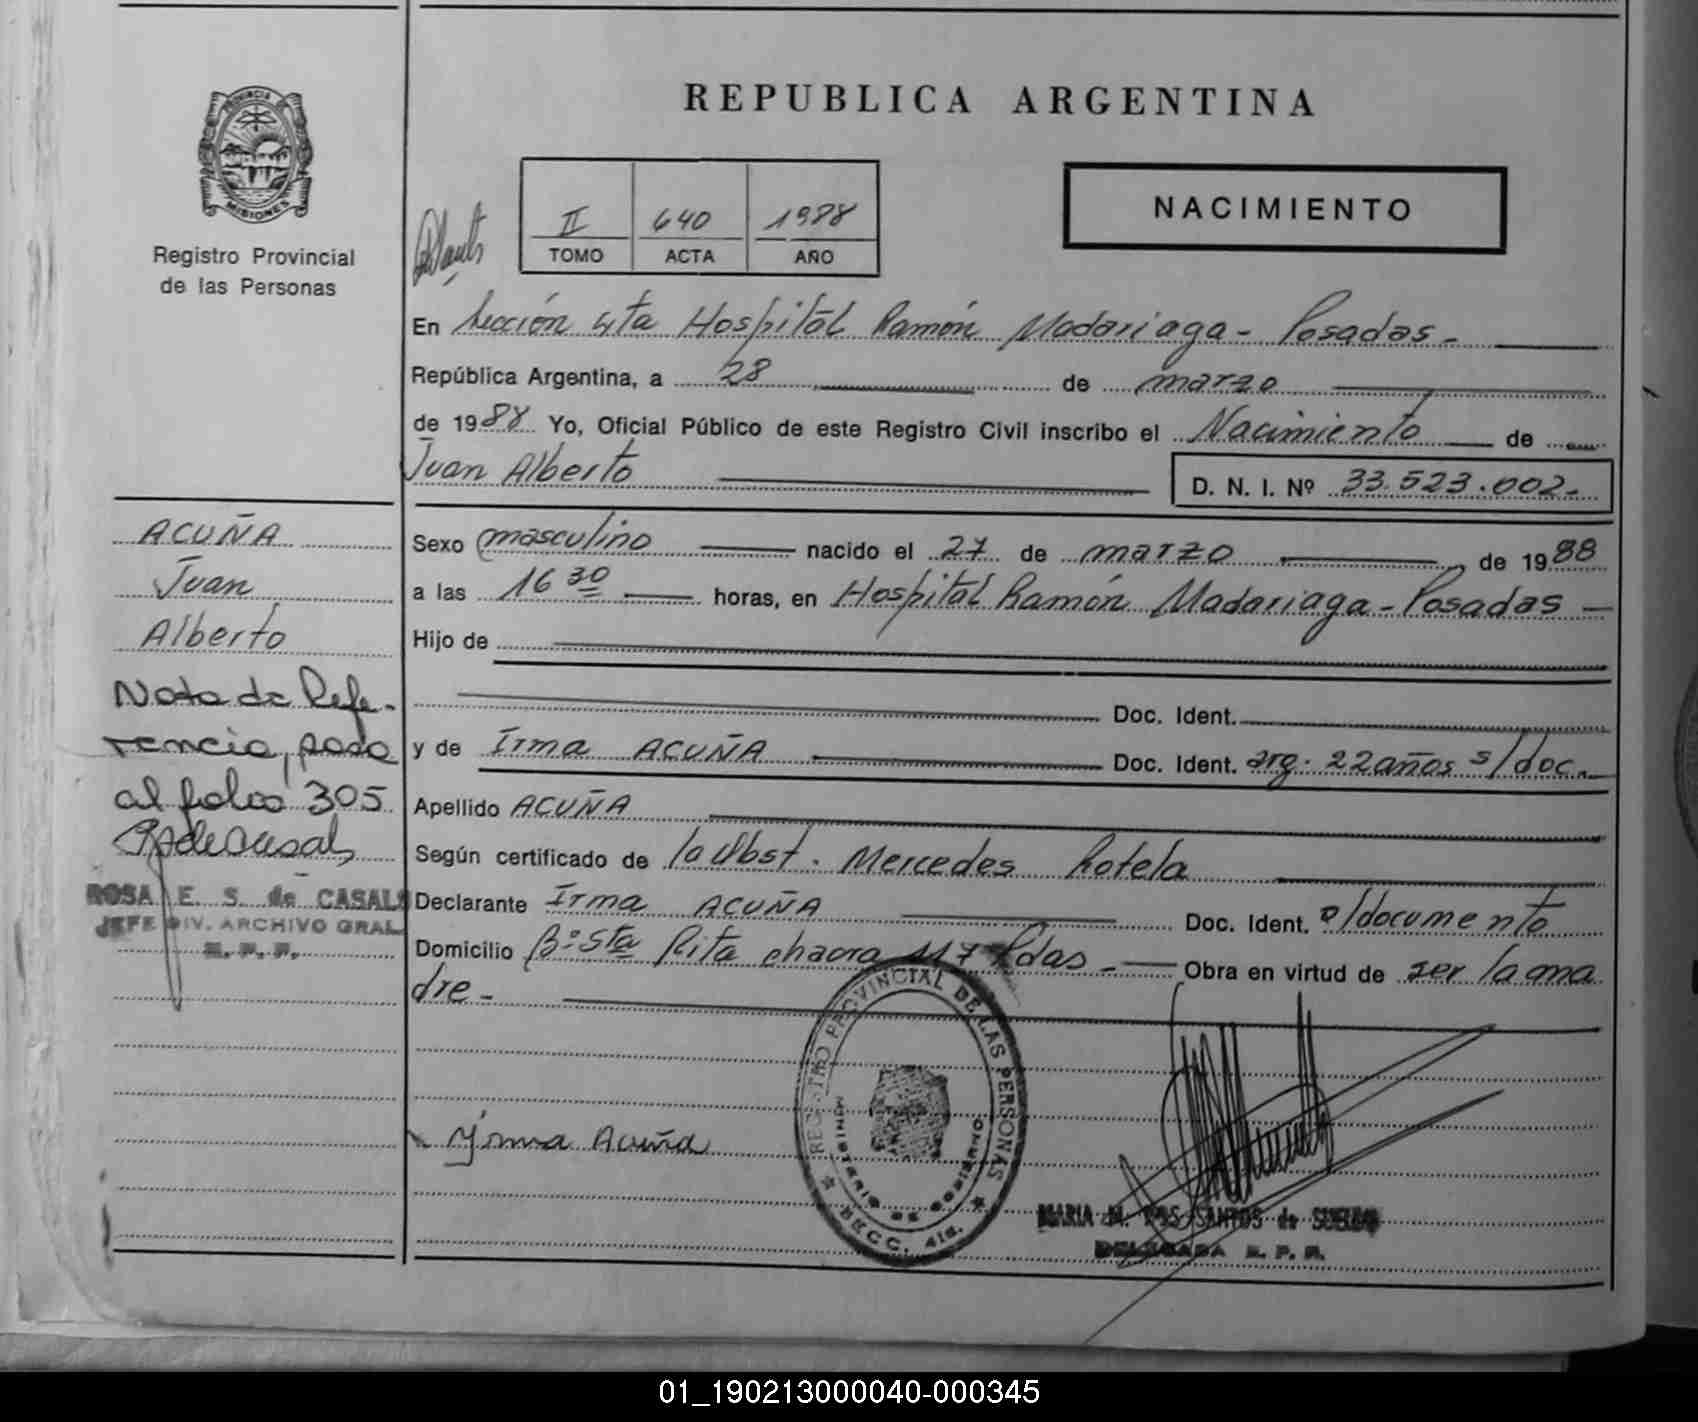 REPUBLICA ARGENTINA
PROVINCIA DE
MISIONES
Registro Provincial
de las Personas
II 640 1988
TOMO ACTA AÑO
NACIMIENTO
En Sección 4ta Hospital Ramón Madariaga - Posadas -
República Argentina, a 28 de marzo
de 1988 Yo, Oficial Público de este Registro Civil inscribo el Nacimiento de
Juan Alberto
D. N. I. Nº 33.523.002.-
Sexo masculino nacido el 27 de marzo de 1988
a las 16 30 horas, en Hospital Ramón Madariaga - Posadas -
Hijo de
Doc. Ident.
y de Irma ACUÑA Doc. Ident. arg. 22 años s/doc.
Apellido ACUÑA
Según certificado de la Obst. Mercedes Rotela
Declarante Irma ACUÑA Doc. Ident. s/documento
Domicilio Bº Sta Rita chacra 117 Pdas - Obra en virtud de ser la ma
dre -
ACUÑA
Juan
Alberto
Nota de Refe-
rencia, pasa
al folio 305
ROSA E. S. de CASALS
JEFE DIV. ARCHIVO GRAL.
R. P. P.
Irma Acuña
REGISTRO PROVINCIAL DE LAS PERSONAS
MINISTERIO DE GOBIERNO
SECC. 4ta.
MARIA M. DOS SANTOS de
DELEGADA R. P. P.
01_190213000040-000345